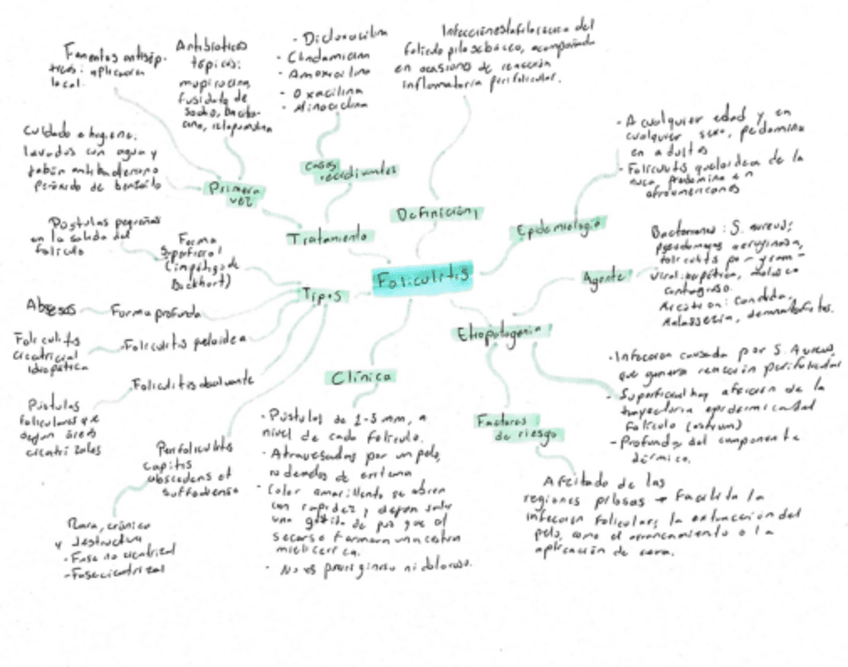 Foliculitis
Definición
Infección estafilocócica del
folículo pilosebáceo, acompañada
en ocasiones de reacción
inflamatoria perifolicular.
Epidemiología
- A cualquier edad y en
cualquier sexo, predomina
en adultos
- Foliculitis queloidea de la
nuca, predomina en
afroamericanos
Etiopatogenia
Agente
Bacterianas: S. aureus;
pseudomonas aeruginosa,
foliculitis por gram -
Viral: herpética, molusco
contagioso.
Micótica: Candida,
Malassezia, dermatofitos.
- Infección causada por S. Aureus,
que genera reacción perifolicular
- Superficial hay afección de la
trayectoria epidérmica del
folículo (ostium)
- Profunda, del componente
dérmico.
Factores
de riesgo
Afeitado de las
regiones pilosas → Facilita la
infección folicular; la extracción del
pelo, como el arrancamiento o la
aplicación de cera.
Clínica
- Pústulas de 1-3 mm, a
nivel de cada folículo.
- Atravesadas por un pelo,
rodeadas de eritema
- Color amarillento se abren
con rapidez y dejan salir
una gotita de pus que al
secarse forman una costra
melicérica.
- No es pruriginoso ni doloroso.
Tipos
Forma
superficial
(impétigo de
Bockhart)
Pústulas pequeñas
en la salida del
folículo
Forma profunda
Absesos
Foliculitis
cicatricial
idiopática
Foliculitis decalvante
Pústulas
foliculares que
dejan áreas
cicatrizales
Perifoliculitis
capitis
abscedens et
suffodiens
Rara, crónica
y destructiva
- Fase no cicatrizal
- Fase cicatrizal
Tratamiento
Primera
vez
Fomentos antisép-
ticos: aplicación
local.
Antibióticos
tópicos:
mupirocina,
fusidato de
sodio,
Cuidado e higiene.
lavados con agua y
jabón antibacteriano
Peróxido de benzoilo
Casos
recidivantes
- Dicloxacilina
- Clindamicina
- Amoxicilina
- Oxacilina
- Minociclina